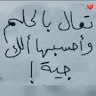 تعال بالحلم
وأحسبها ألك
جية !